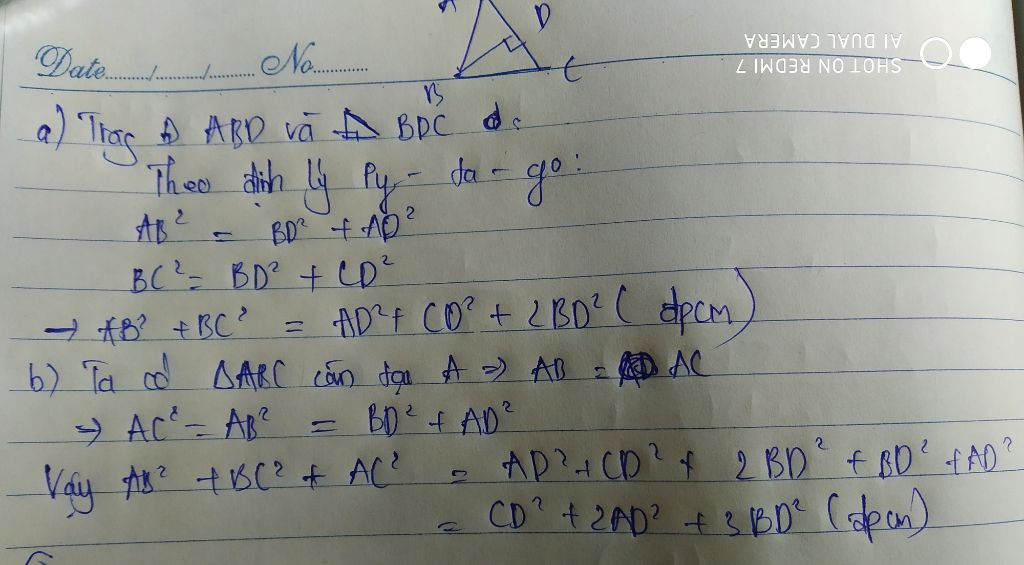 A
D
B
C
SHOT ON REDMI 7
AI DUAL CAMERA
Date......../......../........ No..............
a) Trog Δ ABD và Δ BDC
Theo định lý Py-ta-go:
AB² = BD² + AD²
BC² = BD² + CD²
→ AB² + BC² = AD² + CD² + 2BD² (đpcm)
b) Ta có ΔABC cân tại A ⇒ AB = AC
⇒ AC² = AB² = BD² + AD²
Vậy AB² + BC² + AC² = AD² + CD² + 2BD² + BD² + AD²
= CD² + 2AD² + 3BD² (đpcm)